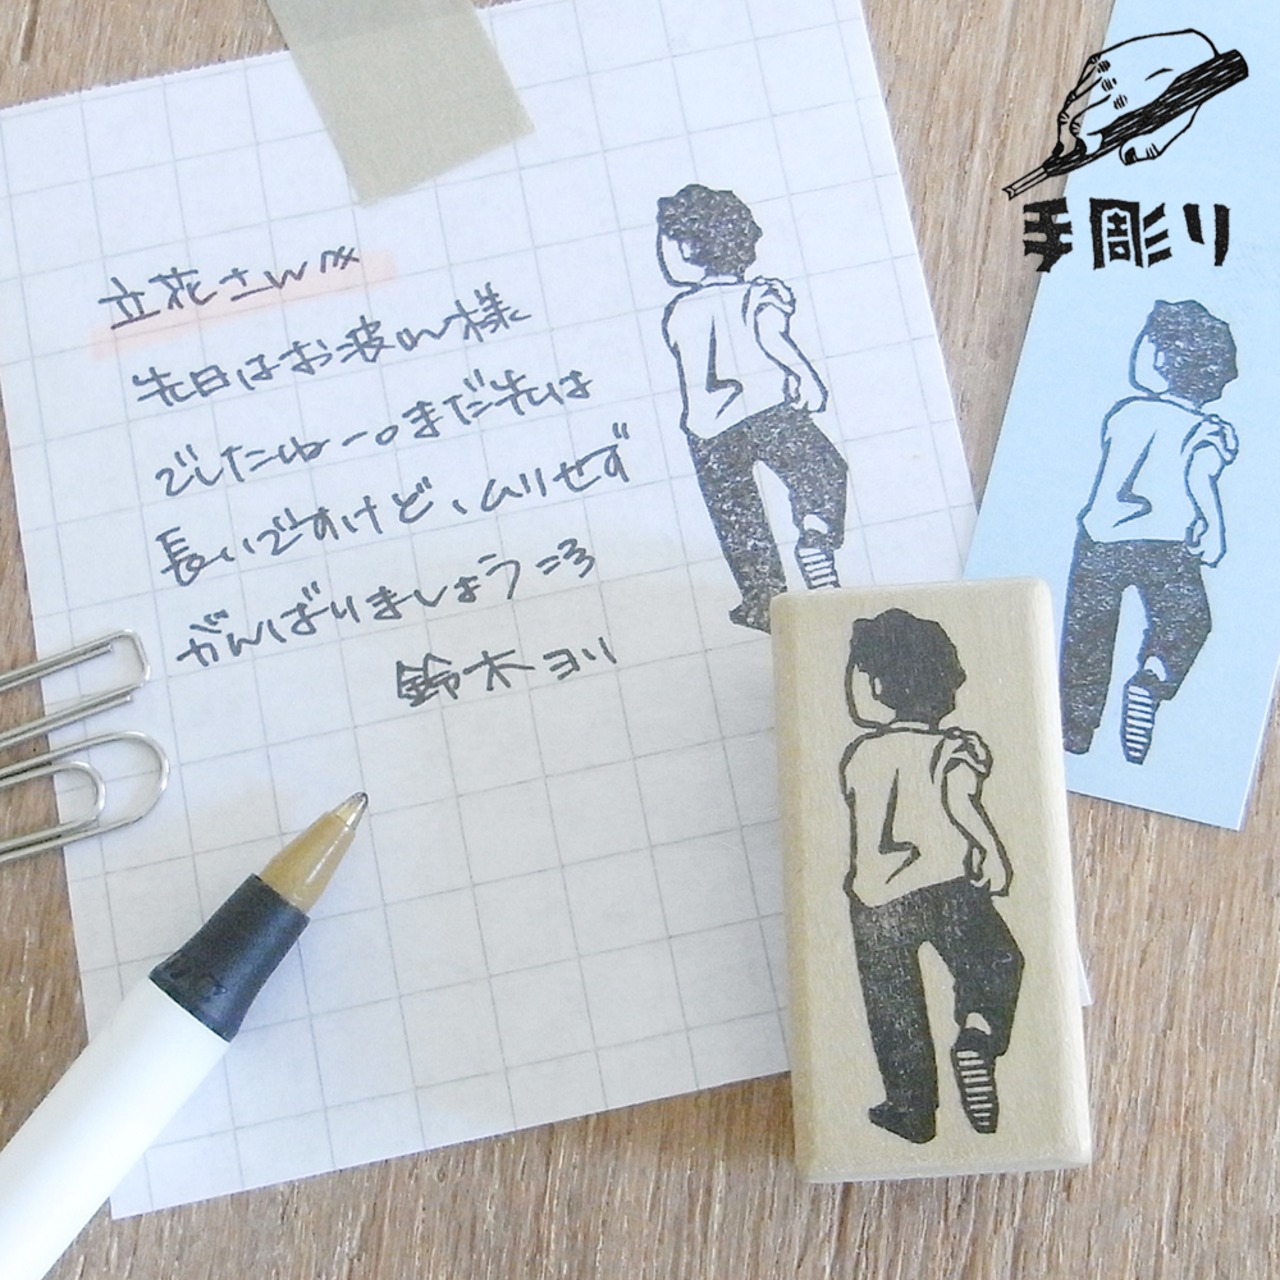 手彫り
立花さんへ
先日はお疲れ様
でしたねー。まだ先は
長いですけど、ムリせず
がんばりましょう
鈴木ヨリ